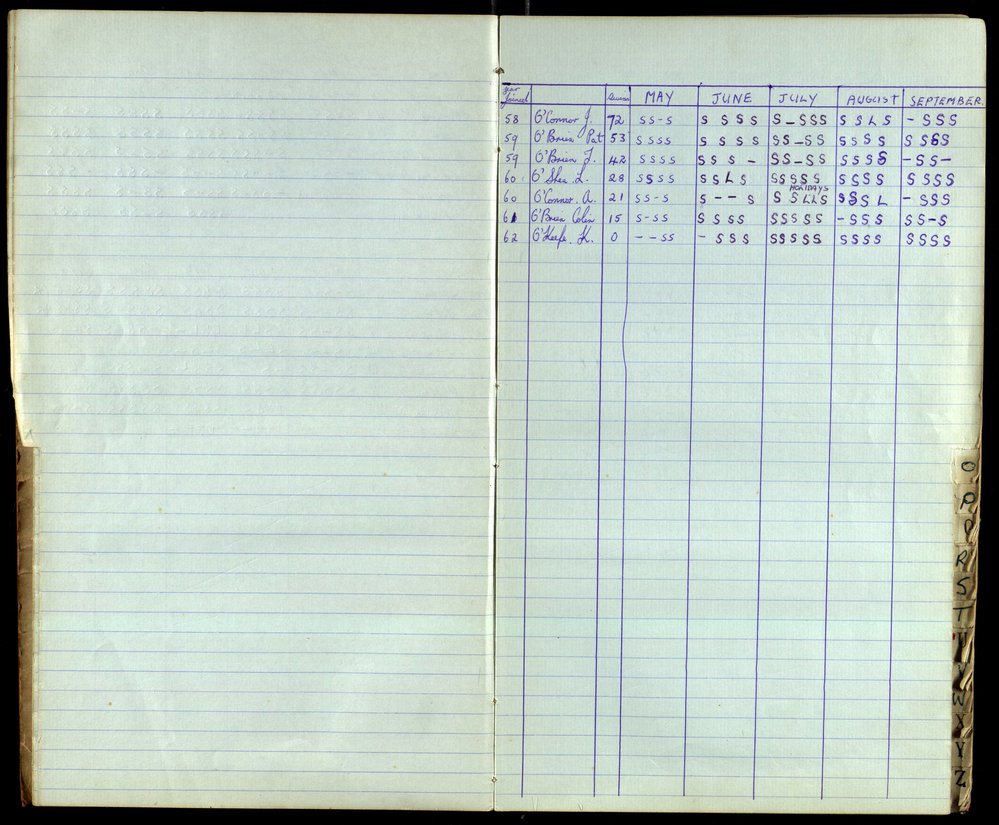 Year Joined MAY JUNE JULY AUGUST SEPTEMBER.
58 O'Connor J. 72 SS-S S S S S S_SSS S S L S - SSS
59 O'Brien Pat 53 SSSS S S S S SS_SS S S S S S SSS
59 O'Brien J. 42 SSSS S S S - SS-SS SSSS -SS-
60 O'Shea L. 28 SSSS S S L S SSSSS SSSS SSSS
HOLIDAYS
60 O'Connor. A. 21 SS-S S - - S S SLLS SSS L - SSS
61 O'Brien Colin 15 S-SS SSSS SSSSS -SSS SS-S
62 O'Keefe. K. 0 - - SS - SSS SSSSS SSSS SSSS
O
P
P
R
S
T
W
X
Y
Z